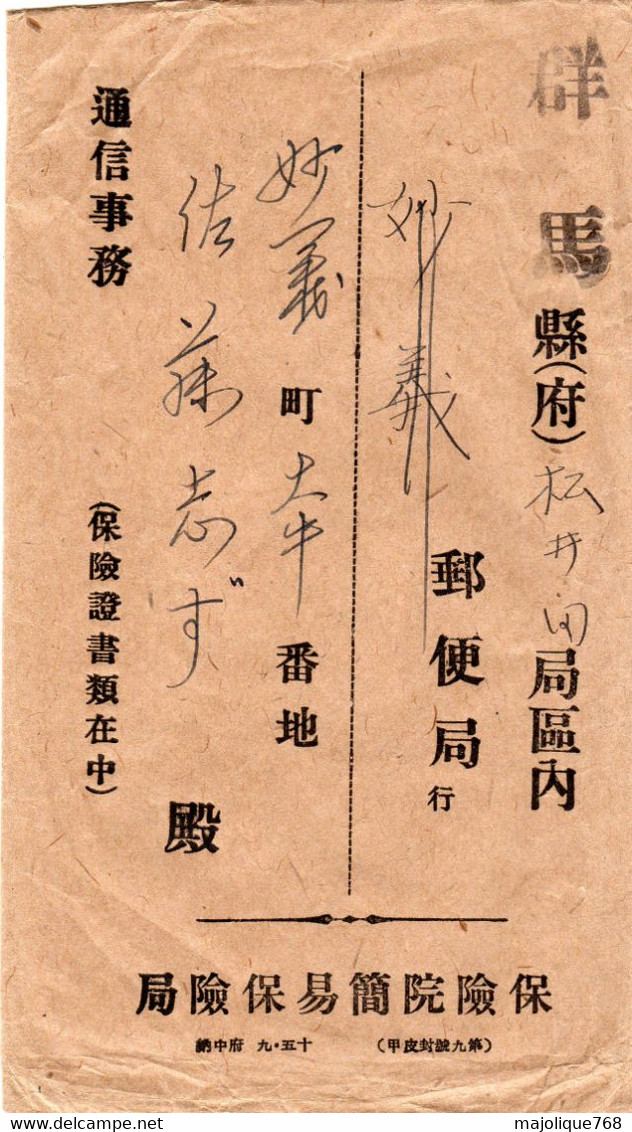 群馬縣(府)松井田局區內
妙義郵便局行
妙義町大牛番地
佐藤志ず殿
通信事務
(保險證書類在中)
局險保易簡院險保
納中府 九・五十 (甲皮封號九第)
majolique768